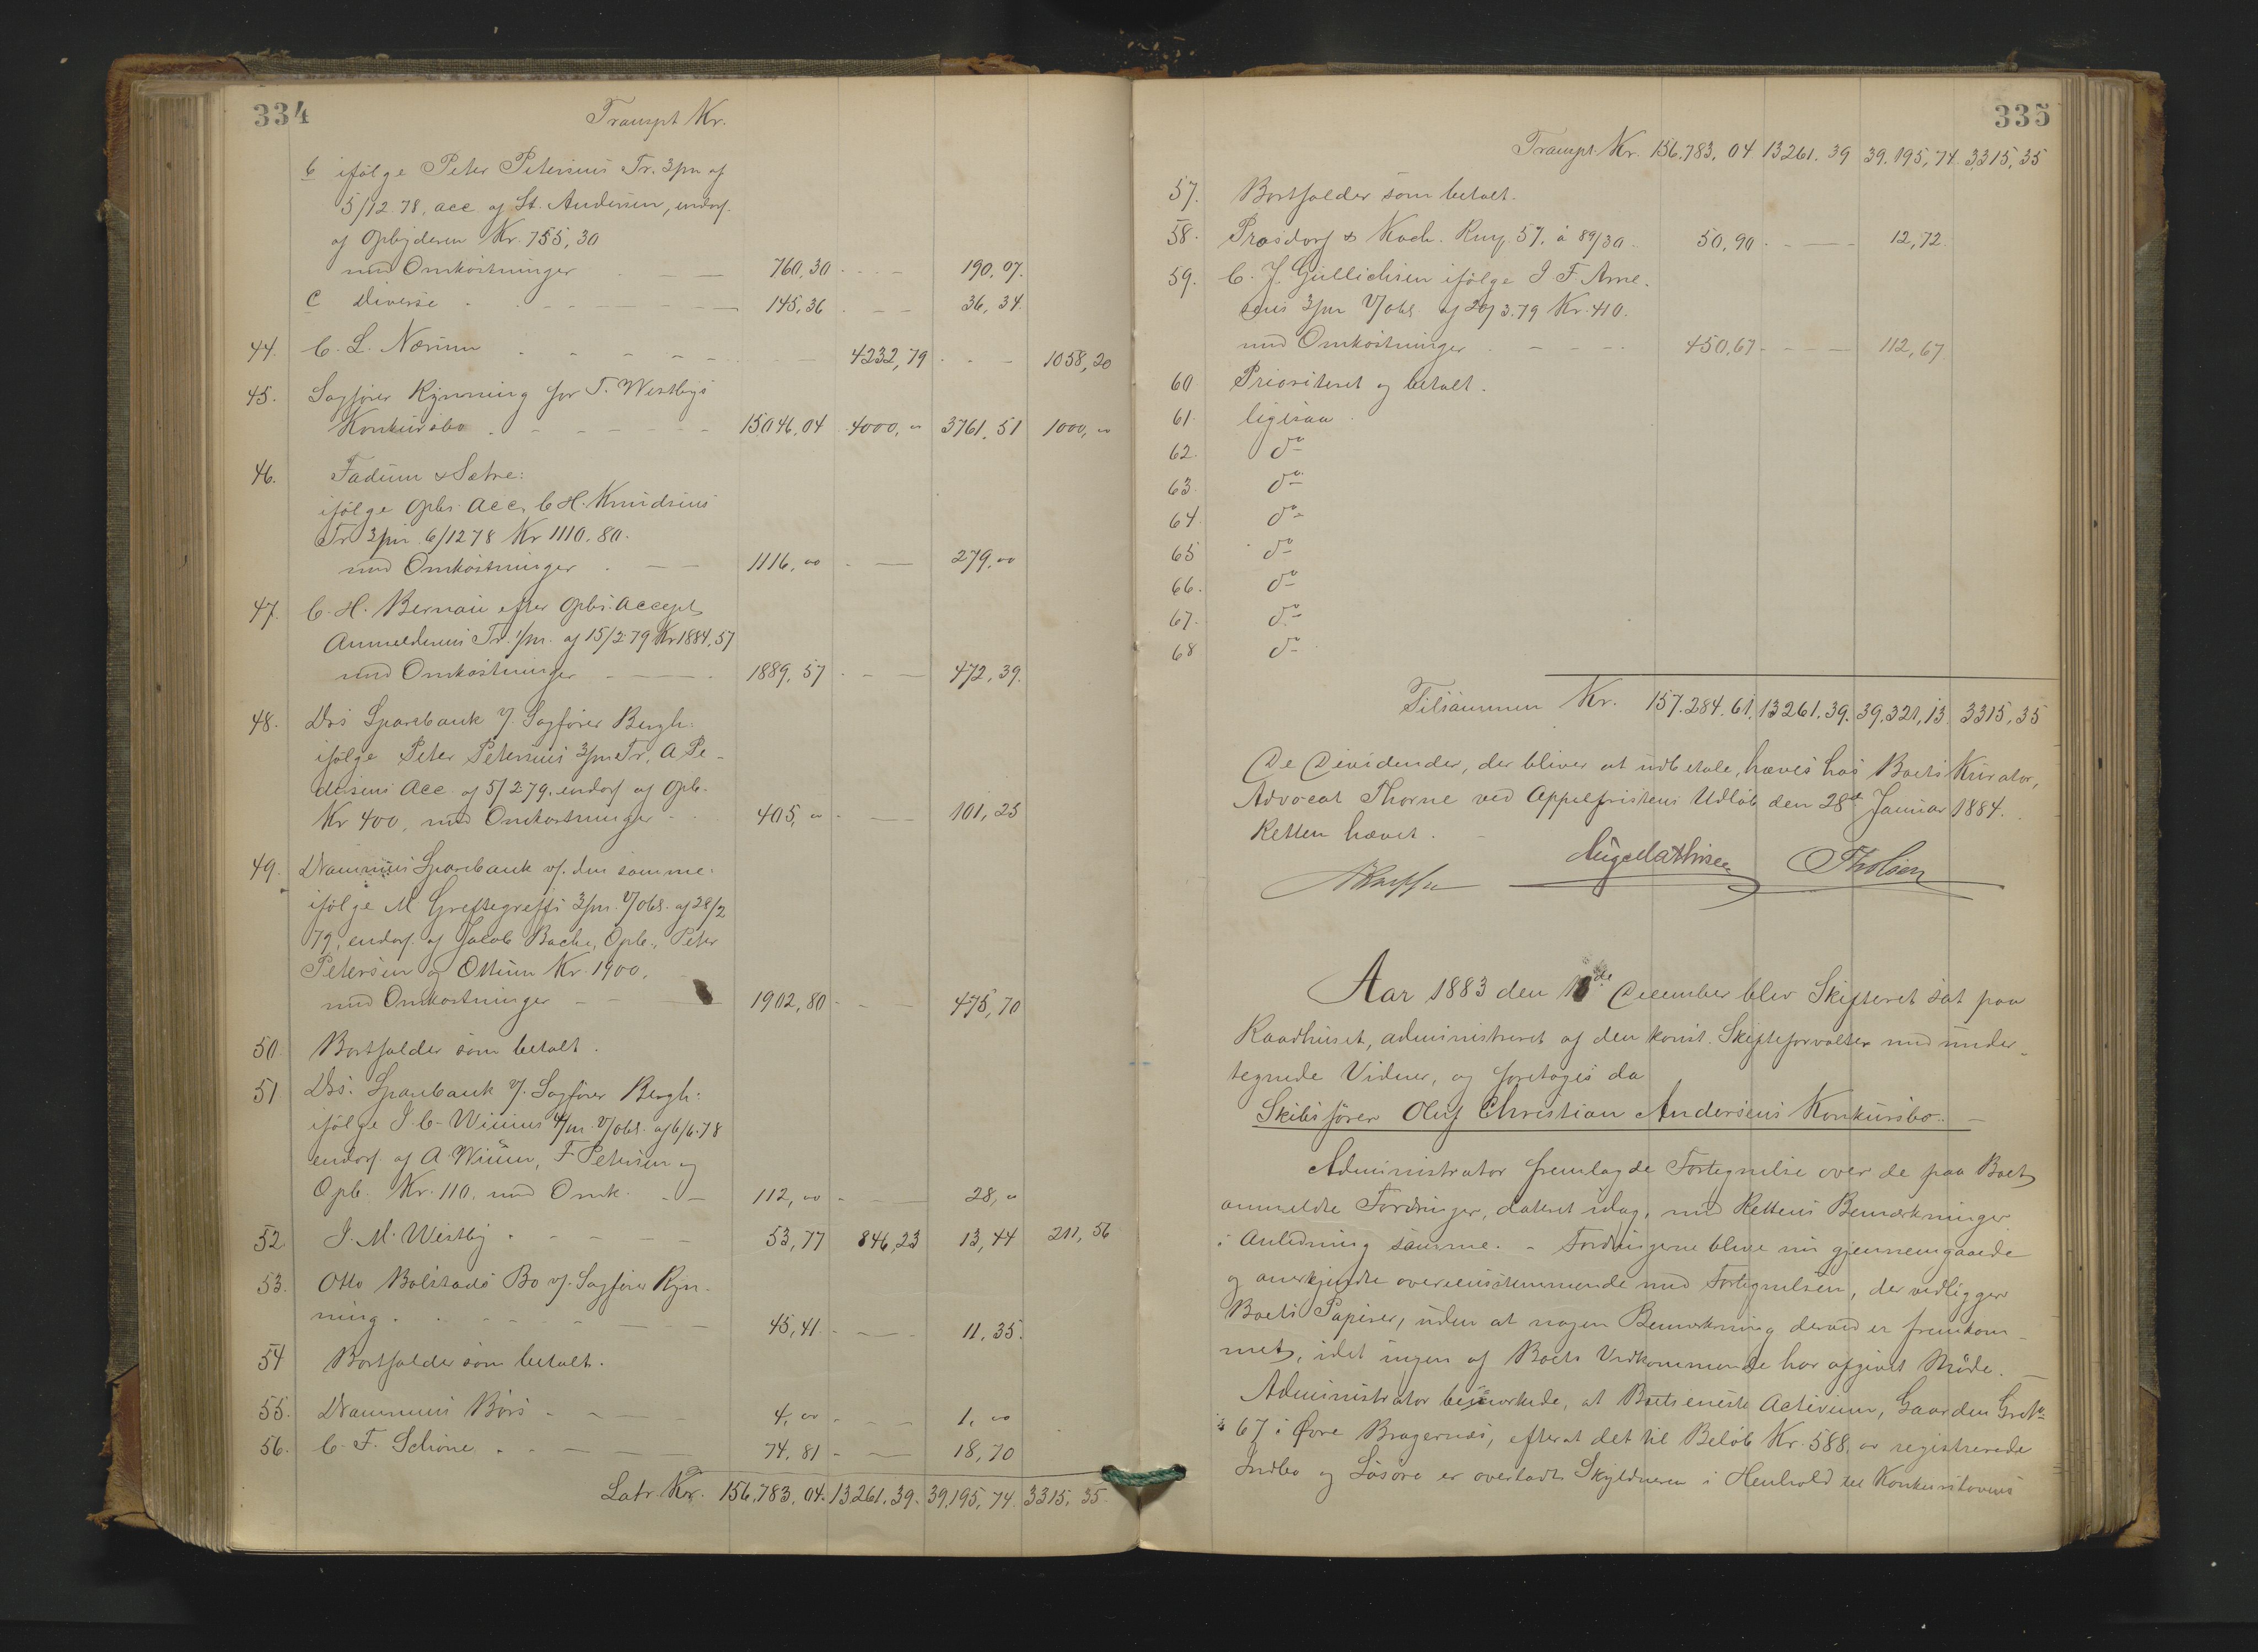 334
Transpt Kr.
b ifölge Peter Petersens Tr. 3/m af
5/12 78, acc. af St. Andersen, endos.
af Opbyderen Kr. 755,30
med Omkostninger - - 760,30 - - 190,07.
c Diverse - - - 145,36 - - 36,34.
44. C. L. Nærum - - - 4232,79 - - 1058,20
45. Sagförer Rynning for T. Westbys
Konkursbo - - - 15046,04 4000,00 3761,51 1000,00
46. Fadum & Sætre:
ifölge Opbs. Acc. C. H. Knudsens
Tr. 3/m 6/12 78 Kr 1110.80.
med Omkostninger - - 1116,00 - - 279,00
47. C. H. Bernau efter Opbs. Accept
Anmelderens Tr. 1/m. af 15/2 79 Kr 1884,57
med Omkostninger - - 1889,57 - - 472,39.
48. Drs Sparebank v/ Sagförer Bergh:
ifölge Peter Petersens 3/m Tr. A Pe-
dersens Acc. af 5/2 79, endos. af Opb.
Kr 400, med Omkostninger - - 405,00 - - 101,25
49. Drammens Sparebank v/. den samme:
ifölge M Grefsegreffs 3/m. V/obl. af 28/2
79, endos. af Jacob Bache, Opb., Peter
Petersen og Ottium Kr. 1900,
med Omkostninger - - 1902,80 - - 475,70
50. Bortfalder som betalt.
51. Drs. Sparebank v/. Sagförer Bergh:
ifölge J. C. Wiums 4/m. V/obl. af 6/6.78
endos. af A. Wium, F Petersen og
Opb. Kr. 110, med Omk. - - 112,00 - - 28,00
52. J. M. Westby - - - 53,77 846,23 13,44 211,56
53. Otto Bolstads Bo v/. Sagförer Ryn-
ning. - - - 45,41 - - 11,35.
54. Bortfalder som betalt.
55. Drammens Börs - - - 4,00 - - 1,00
56. C. F. Schöne - - - 74,81 - - 18,70
Latr. Kr. 156,783,04. 13261.39. 39,195,74. 3315,35.
335
Transpt. Kr. 156,783,04 13261.39 39.195,74. 3315,35
57. Bortfalder som betalt.
58. Prasdorf & Koch. Rmy. 57, à 89/30 - 50,90 - - 12,72.
59. C. J. Gullichsen ifölge J F. Arne-
sens 3/m V/obl. af 20/3.79 Kr. 410.
med Omkostninger - - 450,67 - - 112,67
60. Prioriteret og betalt.
61. ligesaa
62. do
63. do
64. do
65 do
66. do
67. do
68 do
Tilsammen Kr. 157.284,61. 13261.39. 39,321,13. 3315,35
De Dividender, der bliver at udbetale, hæves hos Boets Kurator,
Advocat Thorne ved Appelfristens Udløb den 28de Januar 1884.
Retten hævet.
Aug Mathisen
Aar 1883 den de December blev Skifteret sat paa
Raadhuset, administreret af den konst. Skifteforvalter med under-
tegnede Vidner, og foretoges da
Skibsförer Oluf Christian Andersens Konkursbo. -
Administrator fremlagde Fortegnelse over de paa Boet
anmeldte Fordringer, dateret idag, med Rettens Bemærkninger
i Anledning samme. - Fordringerne bleve nu gjennemgaaede
og anerkjendte overeensstemmende med Fortegnelsen, der vedligger
Boets Papirer, uden at nogen Bemærkning derved er fremkom-
met, idet ingen af Boets Vedkommende har afgivet Möde. -
Administrator bemærkede, at Boets eneste Activum, Gaarden Gr No
67 i Øvre Bragernæs, efterat det til Belöb Kr. 588,00 registrerede
Indbo og Lösöre er overladt Skyldneren i Henhold til Konkurslovens